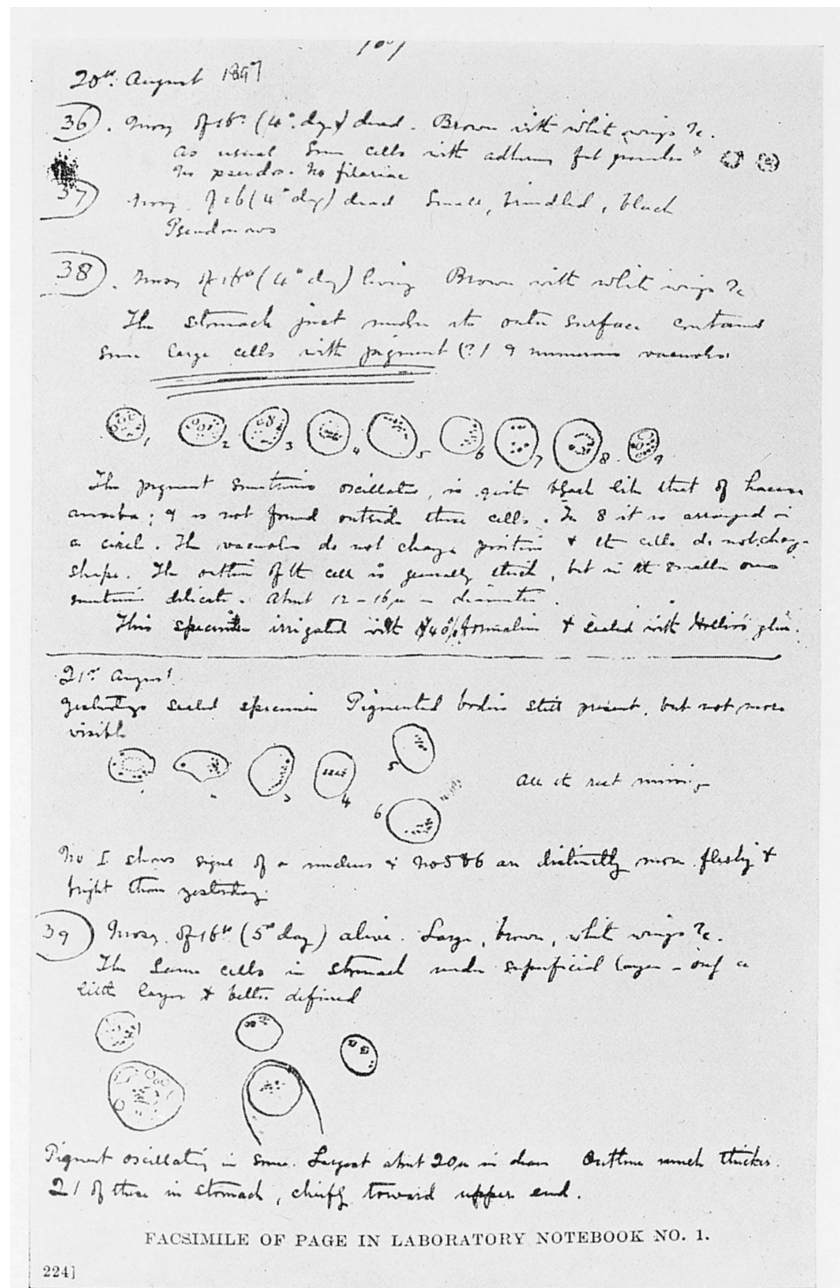 107
20th August 1897
36. Mosq. of 16th (4th day) dead. Brown with white wings &c.
As usual Some cells with adhering fat granules
No pseudo. No filariae
37 Mosq. of 16 (4th day) dead Small, brindled, black
Pseudonavs
38. Mosq of 16th (4th day) living Brown with white wings &c
The stomach just under its outer surface contains
some large cells with pigment (?) & numerous vacuoles
1 2 3 4 5 6 7 8 9
The pigment sometimes oscillates, is quite black like that of haem
amoeba; & is not found outside these cells. In 8 it is arranged in
a circle. The vacuoles do not change position & the cells do not change
shape. The outline of the cell is generally thick, but in the smaller ones
sometimes delicate. About 12 - 16µ in diameter.
This specimen irrigated with 40% formalin & sealed with Hollis's glue.
21st August
Yesterdays sealed specimen Pigmented bodies still present, but not more
visible
3 4 5 6 All the rest missing
No 1 shows signs of a nucleus & No 5 & 6 are distinctly more fleshy &
bright than yesterday
39 Mosq. of 16th (5th day) alive. Large, brown, white wings &c.
The same cells in stomach under superficial layer - only a
little larger & better defined
Pigment oscillating in some. Largest about 20µ in diam Outline much thicker.
21 of these in stomach, chiefly toward upper end.
FACSIMILE OF PAGE IN LABORATORY NOTEBOOK NO. 1.
224]